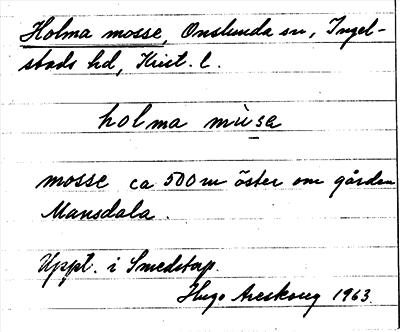 Holma mosse, Onslunda sn, Ingel-
stads hd, Krist. l.
holma mùsa
mosse ca 500 m öster om gården
Mansdala.
Uppt. i Smedstorp.
Hugo Areskoug 1963